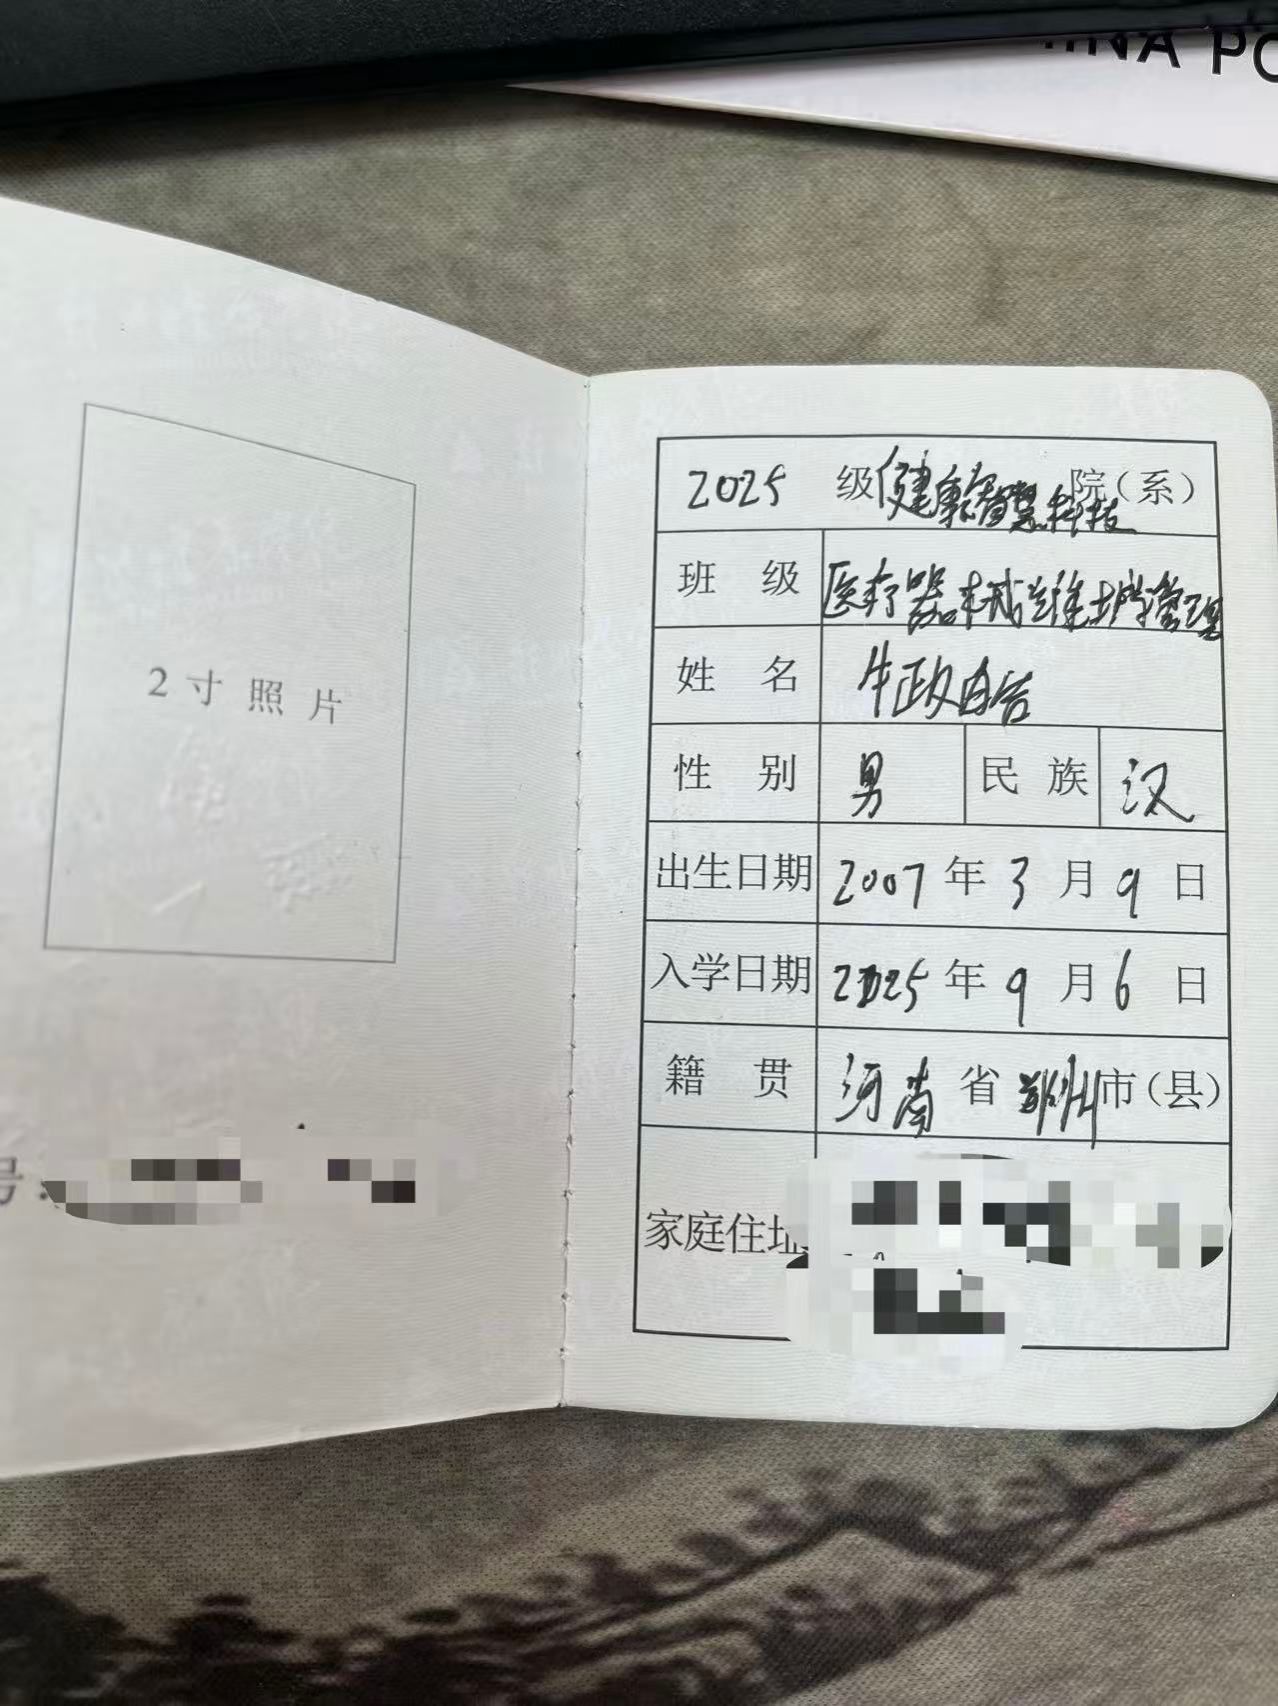 INA PO
2寸照片
号：
2025 级健康智慧科技院（系）
班 级 医疗器械维护与管理
姓 名 牛政
性 别 男 民 族 汉
出生日期 2007 年 3 月 9 日
入学日期 2025 年 9 月 6 日
籍 贯 河南 省 郑州 市（县）
家庭住址